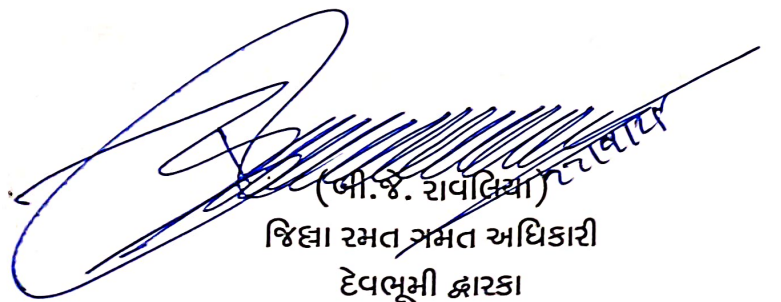 (બી.જે. રાવલિયા)
જિલ્લા રમત ગમત અધિકારી
દેવભૂમી દ્વારકા